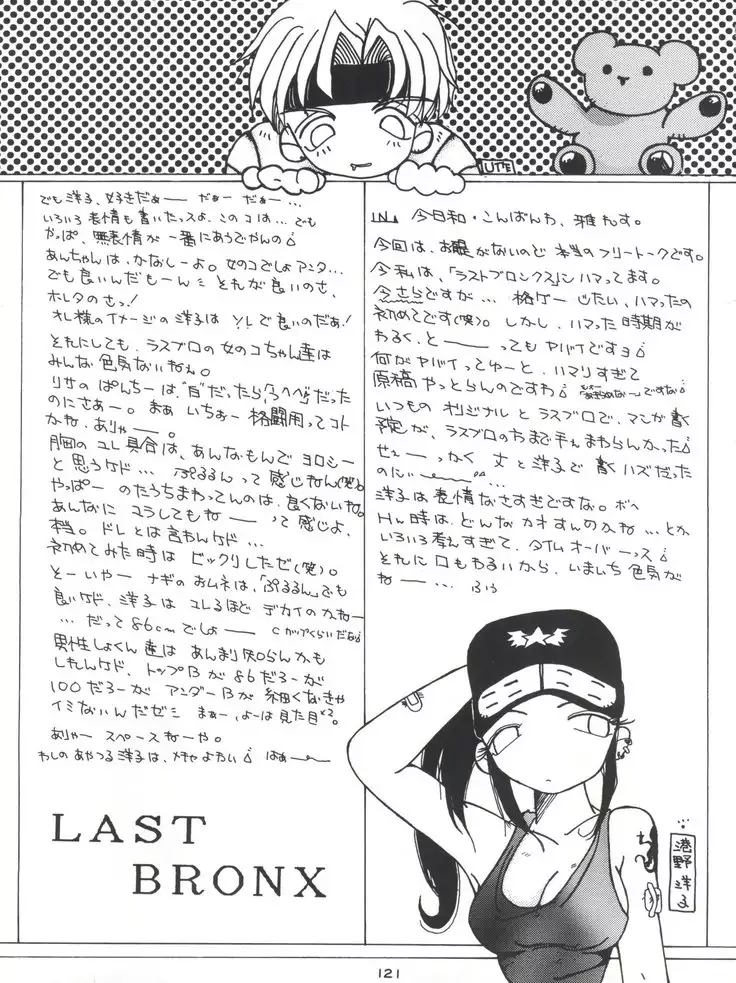 今日和・こんばんわ、雅れす。
今回は、お題がないので本当のフリートークです。
今私は、「ラストブロンクス」にハマってます。
今さらですが… 格ゲーじたい、ハマったの
初めてです(笑)。しかし、ハマった時期が
わるく、と——ってもヤバイですョ
何がヤバイってゆーと、ハマりすぎて
原稿やっとらんのですわ
いつものオリジナルとラスブロで、マンガ書く
予定が、ラスブロのちまで手ぇまわらんかった
せぇーっかく 丈と洋子で書くハズだった
のにぃー——…
洋子は表情なさすぎですな。ボヘ
H時は、どんなカオすんのかね…とか
いろいろ考えすぎて、タイムオーバーっス
それに口もわるいから、いまいち色気が
ねー—… ふぅ
でも洋子、好きだぁー—だぁーだぁー…
いろいろ表情も書いたっスよ、このコは…でも
やっぱ、無表情が一番にあうでやんの
あんちゃんは、かなしーよ。女のコでしょアンタ…
でも良いんだもーん それが良いのさ、
ホレタのさっ!
オレ様のイメージの洋子はソレで良いのだぁ!
それにしても、ラスブロの女のコちゃん達は
みんな色気ないねぇ。
リサのぱんちーは、“白”だったら「うへへ」だった
のにさぁー。まぁいちおー格闘用ってコト
かね、ありゃー—。
胸のユレ具合は、あんなもんでヨロシー
と思うケド… ぷるるんって感じねん(笑)。
やっぱーのたうちまわってんのは、良くないね。
あんなにコラしてもねー——って感じよ、
本当。ドレとは言わんケド…
初めてみた時はビックリしたぜ(笑)。
そーいやーナギのおムネは、「ぷるるん」でも
良いケド、洋子はユレるほどデカイのかねー
…だって86cmでしょー— Cカップくらいだな
男性しょくん達はあんまり知らんかも
しれんケド、トップBが86だろーが
100だろーがアンダーBが細くなきゃ
イミないんだゼ まぁー、よーは見た目×2。
ありゃースペースねーや。
わしのあやつる洋子は、メチャよわい はぁ—
LAST
BRONX
港野洋子
121